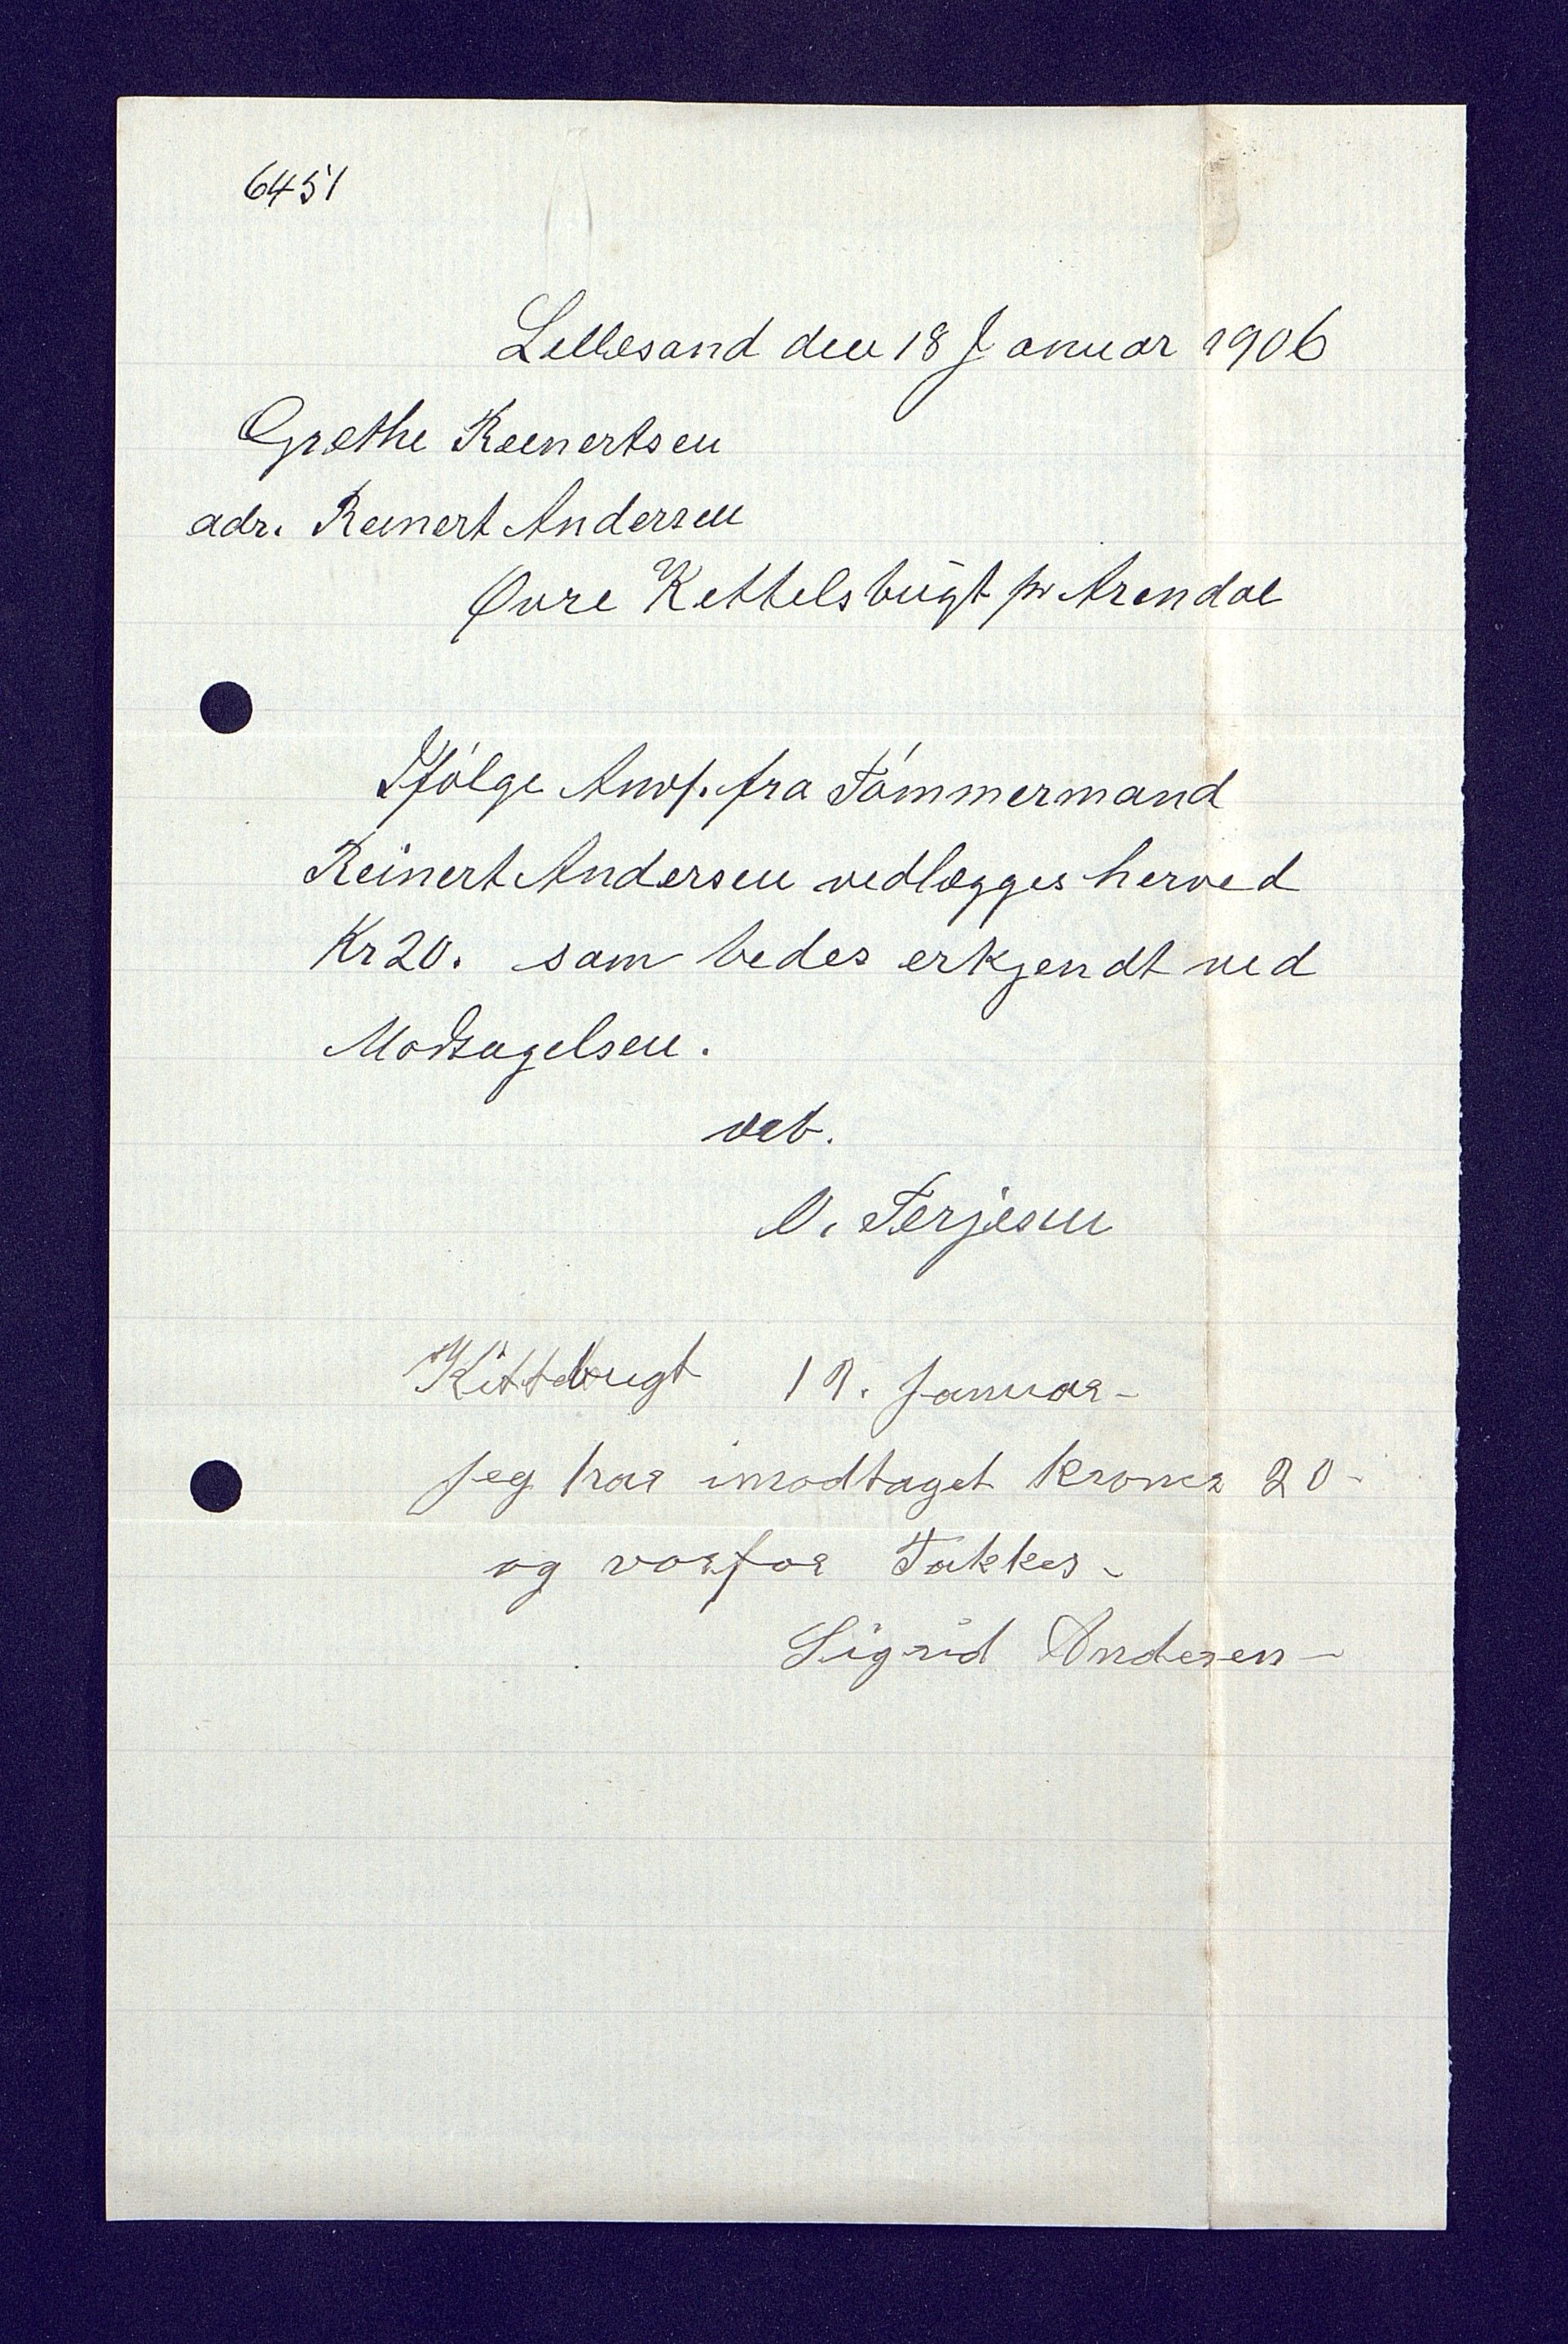 6451
Lillesand den 18 Januar 1906
Grethe Reinertsen
adr. Reinert Andersen
Øvre Kettelsbugt pr Arendal
Ifølge Anvs. fra Tømmermand
Reinert Andersen vedlægges herved
Kr 20. som bedes erkjendt ved
Modtagelsen.
ærb.
O. Terjesen
Kittelbugt 19. Januar -
Jeg har imodtaget kroner 20 -
og vorfor Takkes -
Sigrid Andersen -